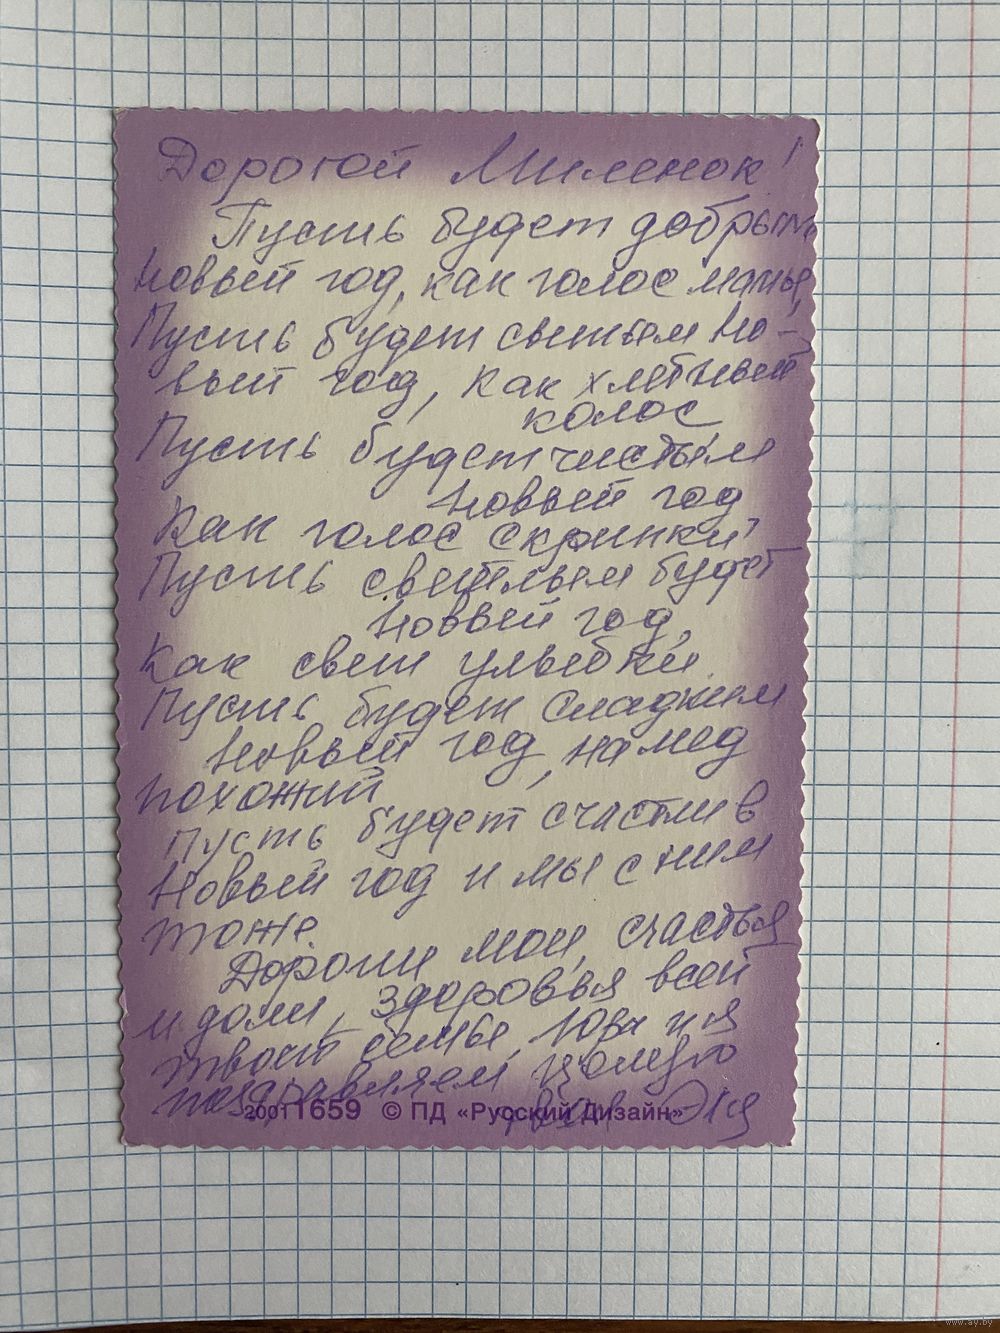 Дорогой Миленок!
Пусть будет добрым
Новый год, как голос мамы,
Пусть будет светлым Но-
вый год, как хлебный
колос
Пусть будет чистым
Новый год
Как голос скрипки
Пусть светлым будет
Новый год,
Как свет улыбки.
Пусть будет сладким
Новый год, на мед
похожий
Пусть будет счастлив
Новый год и мы с ним
тоже.
Дороги мои, счастья
и доли, здоровья всей
твоей семьи, Юра и я
поздравляем, целую
вас Эля
20011659 © ПД «Русский Дизайн»
www.ay.by